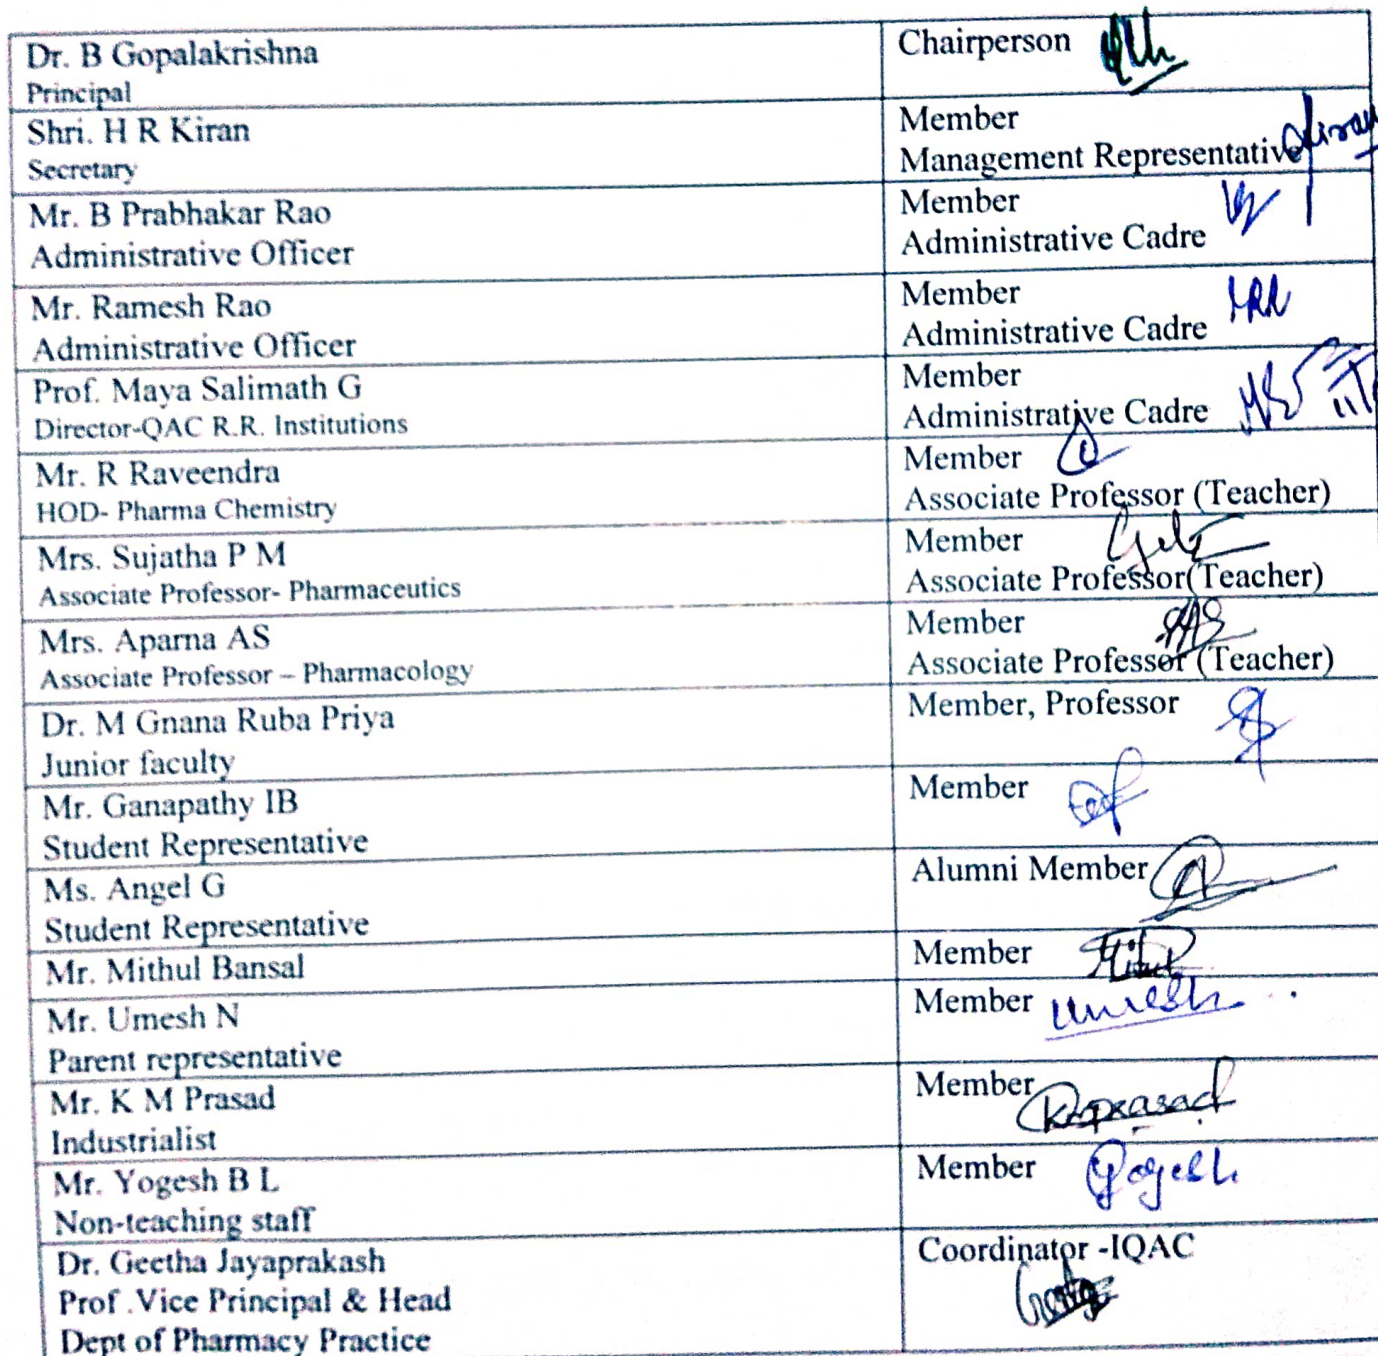 Dr. B Gopalakrishna
Principal
Chairperson
Shri. H R Kiran
Secretary
Member
Management Representative Kiran
Mr. B Prabhakar Rao
Administrative Officer
Member
Administrative Cadre
Mr. Ramesh Rao
Administrative Officer
Member
Administrative Cadre MRR
Prof. Maya Salimath G
Director-QAC R.R. Institutions
Member
Administrative Cadre
Mr. R Raveendra
HOD- Pharma Chemistry
Member
Associate Professor (Teacher)
Mrs. Sujatha P M
Associate Professor- Pharmaceutics
Member
Associate Professor(Teacher)
Mrs. Aparna AS
Associate Professor – Pharmacology
Member
Associate Professor (Teacher)
Dr. M Gnana Ruba Priya
Junior faculty
Member, Professor
Mr. Ganapathy IB
Student Representative
Member
Ms. Angel G
Student Representative
Alumni Member
Mr. Mithul Bansal
Member
Mr. Umesh N
Parent representative
Member Umesh
Mr. K M Prasad
Industrialist
Member Kmprasad
Mr. Yogesh B L
Non-teaching staff
Member Yogesh
Dr. Geetha Jayaprakash
Prof .Vice Principal & Head
Dept of Pharmacy Practice
Coordinator -IQAC